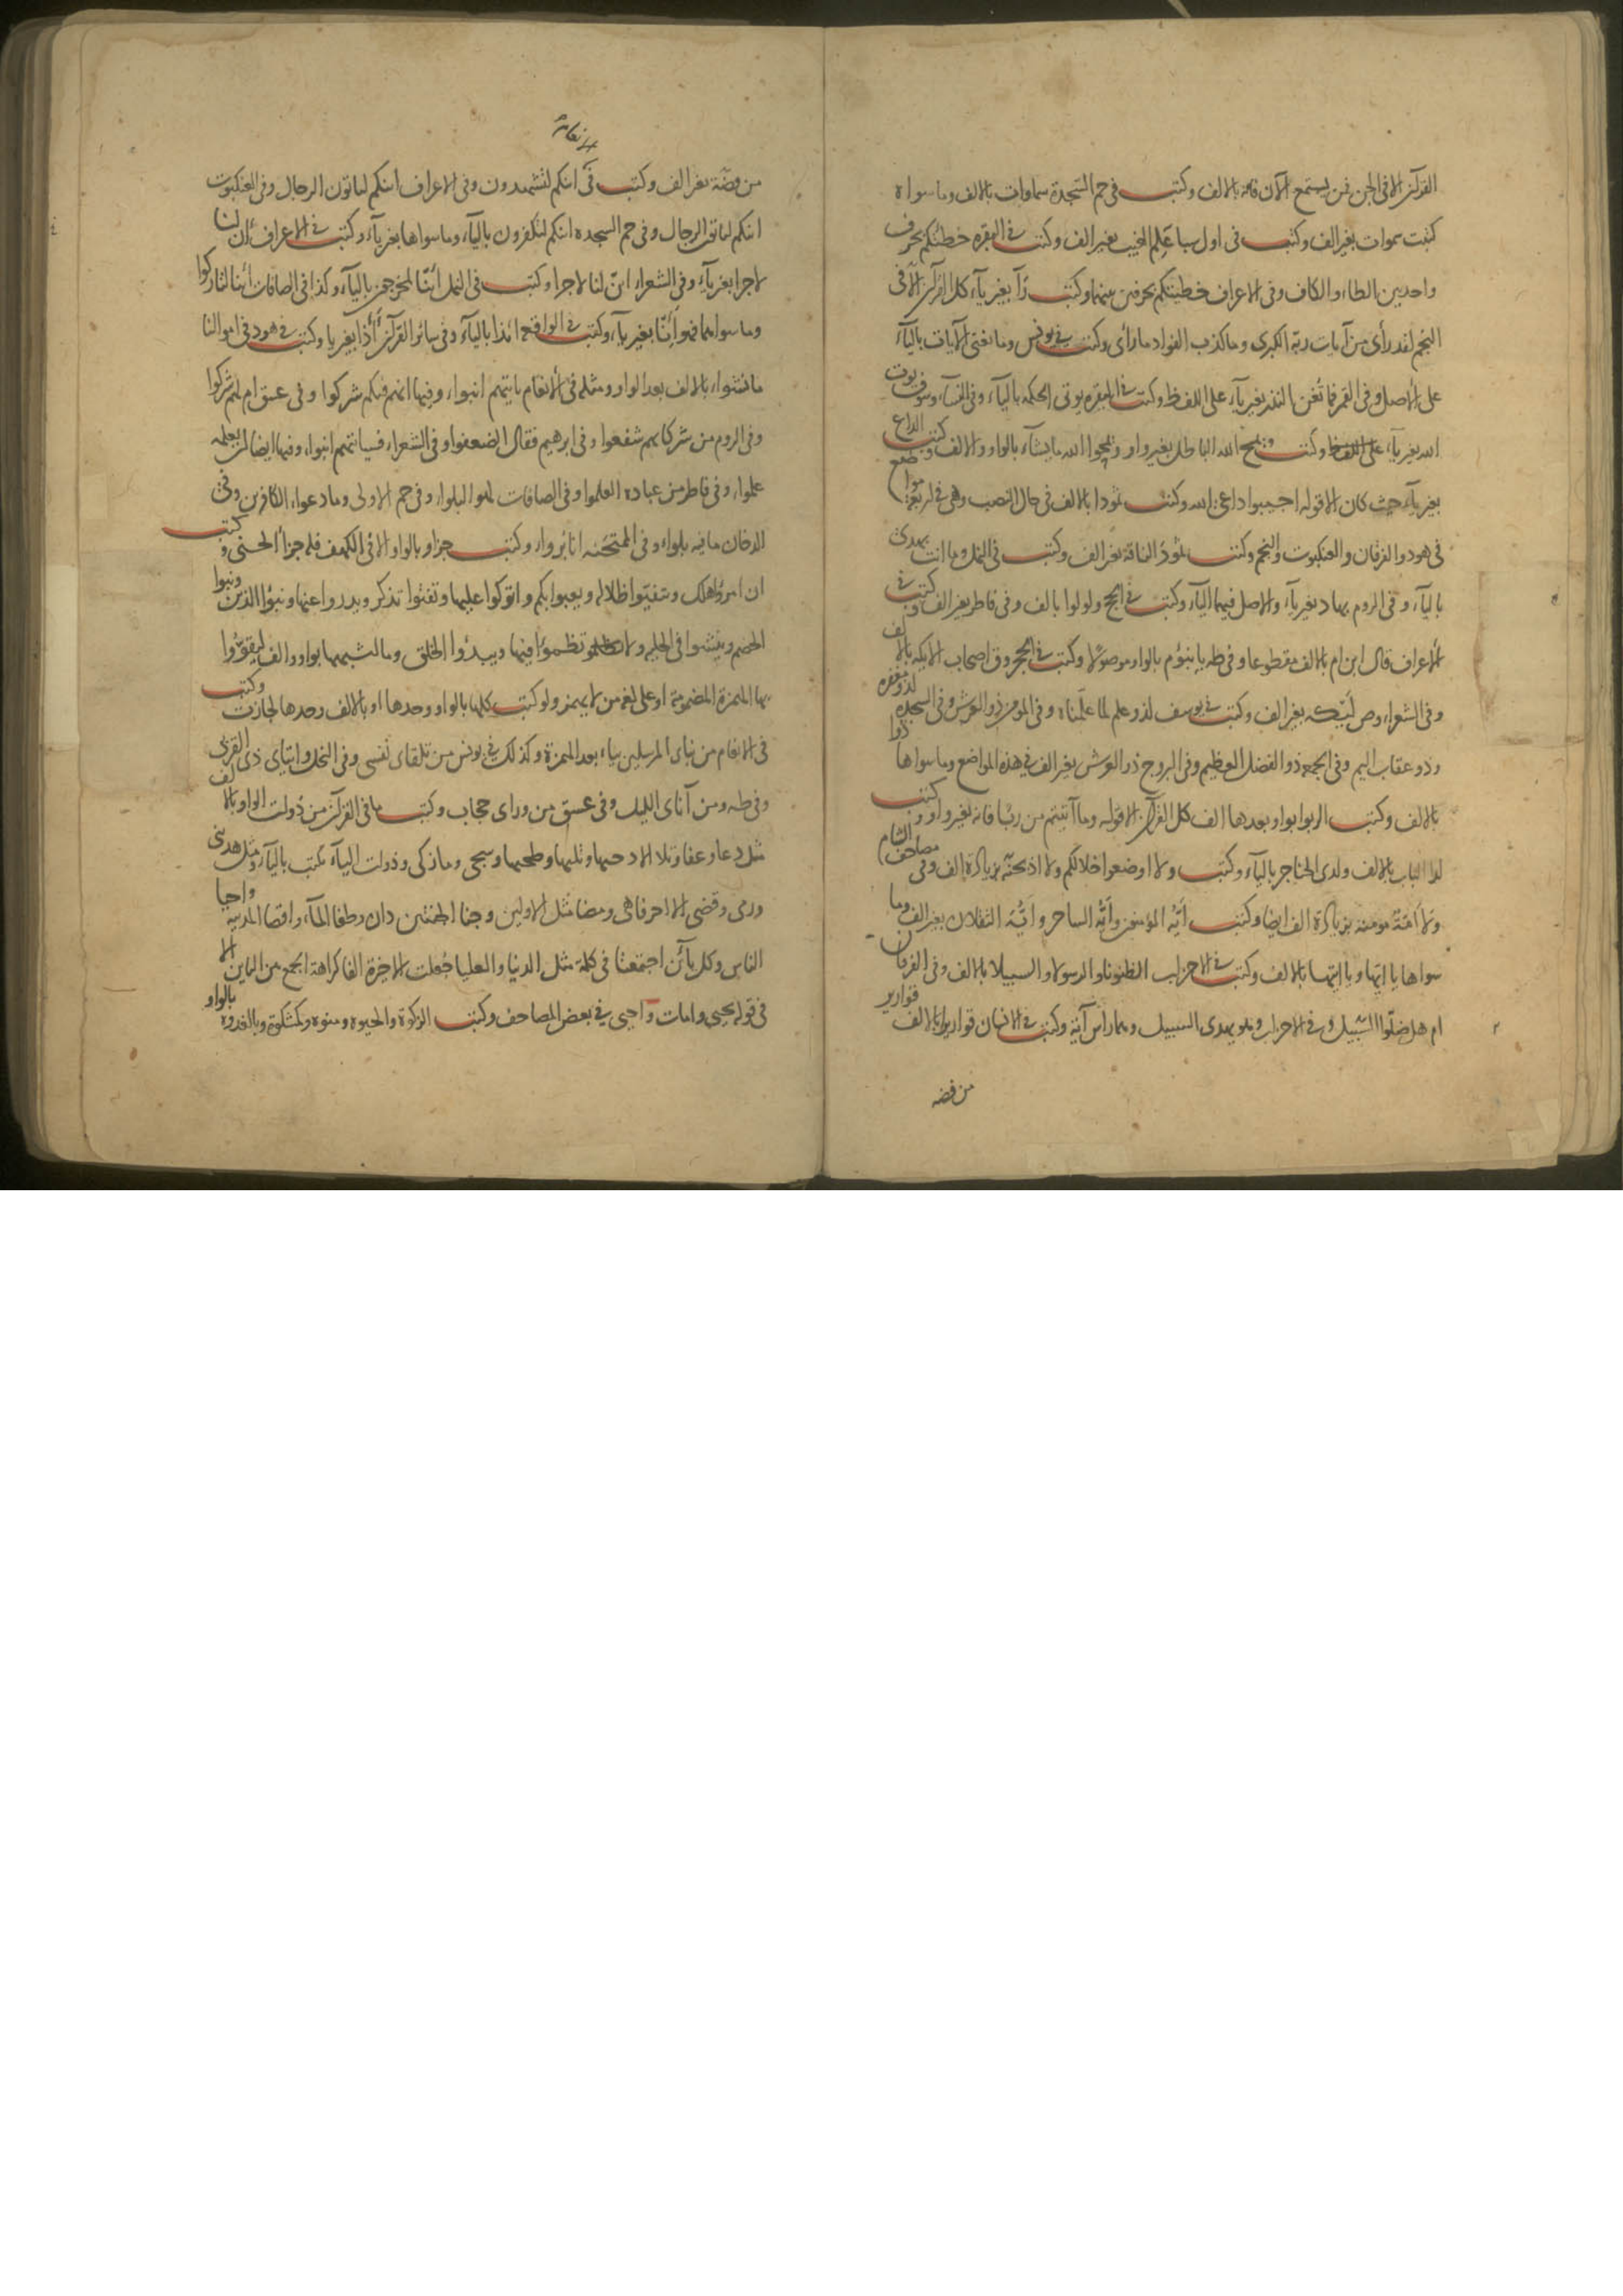 القرآن الا في الجن فمن يستمع الآن فانه بالالف وكتبت في حم السجدة سماوات بالالف وما سواه
كتبت سموات بغير الف وكتبت في اول سبا علم الغيب بغير الف وكتبت في البقره خطيكم بحرف
واحد بين الطاء والكاف وفي الاعراف خطيئتكم بحرفين بينهما وكتبت رآ بغير ياء كل القرآن الا في
النجم لقد رأى من آيات ربه الكبرى وما كذب الفواد ما رأى وكتبت في يونس وما تغني الآيات بالياء
على الاصل وفي القمر فما تغن النذر بغير ياء على اللفظ وكتبت في البقره يوتي الحكمه بالياء وفي النساء وسوف يوت
الله بغير ياء على اللفظ وكتبت ويمح الله الباطل بغير واو ويمحوا الله ما يشاء بالواو والالف وكتبت الداع
بغير ياء حيث كان الا قوله اجيبوا داعي الله وكتبت ثمودا بالالف في حال النصب وهي في اربعة مواضع
في هود والفرقان والعنكبوت والنجم وكتبت ثمود الناقة بغير الف وكتبت في النمل وما انت بهدى
بالياء وفي الروم بهاد بغير ياء والاصل فيهما الياء وكتبت في الحج ولولوا بالف وفي فاطر بغير الف وكتبت في
الاعراف قال ابن ام بالالف مقطوعا وفي طه يا بنؤم بالواو موصولا وكتبت في الحجر وق اصحاب الايكه بالالف
وفي الشعراء وص ليكه بغير الف وكتبت في يوسف لذو علم لما علمناه وفي المومن ذو العرش وفي السجده لذو مغفره
وذو عقاب اليم وفي الجمعه ذو الفضل العظيم وفي البروج ذو العرش بغير الف في هذه المواضع وما سواها ذوا
بالالف وكتبت الربوا بواو بعدها الف كل القرآن الا قوله وما آتيتم من ربا فانه بغير واو وكتبت
لدا الباب بالالف ولدى الحناجر بالياء وكتبت ولا اوضعوا خلالكم ولا اذبحنه بزيادة الف وفي مصاحف الشام
ولا امة مومنه بزيادة الف ايضا وكتبت ايه المؤمنون وايه الساحر وايه الثقلان بغير الف وما
سواها يا ايها ويا ايتها بالالف وكتبت في الاحزاب الظنونا والرسولا والسبيلا بالالف وفي الفرقان
ام هم ضلوا السبيل وفي الاحزاب وهو يهدي السبيل وهما رأس آية وكتبت في الانسان قواريرا بالالف قوارير
من فضه
الانعام
من فضة بغير الف وكتبت في ائنكم لتشهدون وفي الاعراف انكم لتاتون الرجال وفي العنكبوت
ائنكم لتاتون الرجال وفي حم السجده ائنكم لتكفرون بالياء وما سواها بغير ياء وكتبت في الاعراف أإن لنا
لاجرا بغير ياء وفي الشعراء ائن لنا لاجرا وكتبت في النمل أئنا لمخرجون بالياء وكذا في الصافات أئنا لتاركوا
وما سواهما فهو أإنا بغير ياء وكتبت في الواقعه ائذا بالياء وفي سائر القرآن أإذا بغير ياء وكتبت في هود في اموالنا
ما نشوا بالالف بعد الواو ومثله في الانعام يأتيهم انبوا وفيها انهم فيكم شركوا وفي عسق ام لهم شركوا
وفي الروم من شركايهم شفعوا وفي ابرهيم فقال الضعفوا وفي الشعراء فسياتيهم انبوا وفيها ايضا ان يعلمه
علموا وفي فاطر من عباده العلموا وفي الصافات لهو البلوا وفي حم الاولى وما دعوا الكافرين وفي
الدخان ما فيه بلوا وفي الممتحنه انا بروا وكتبت جزاو بالواو الا في الكهف فله جزاء الحسنى وكتبت
ان امرؤا هلك ويتفيؤا ظلاله ويعبوا بكم واتوكوا عليها وتفتوا تذكر ويدروا عنها ونبؤا الذين ونبوا
الخصم وينشوا في الحليه ولا تظموا فيها ويبدؤا الخلق وما اشبهها بواو والف ليقووا
بها الهمزة المضمومة او على لغه من لا يهمز ولو كتبت كلها بالواو وحدها او بالالف وحدها لجازت وكتبت
في الانعام من نباى المرسلين بياء بعد الهمزة وكذلك في يونس من تلقاى نفسي وفي النحل وايتاى ذي القربى
وفي طه ومن آناى الليل وفي عسق من وراى حجاب وكتبت ما في القرآن من ذوات الواو بالالف
مثل دعا وعفا وتلا الا دحيها وتليها وطحيها وسجى وما زكى وذوات الياء تكتب بالياء مثل هدى
ورمى وقضى الا احرفا هي ومضا مثل الاولين وجنا الجنتين دان وطغا الماء واقصا المدينه واحيا
الناس وكل يائين اجتمعتا في كلمة مثل الدنيا والعليا جعلت الاخيرة الفا كراهة الجمع بين اليائين الا
في قوله يحيى وامات واحيى في بعض المصاحف وكتبت الزكوة والحيوه ومنوه وكمشكوة وبالغدوه بالواو